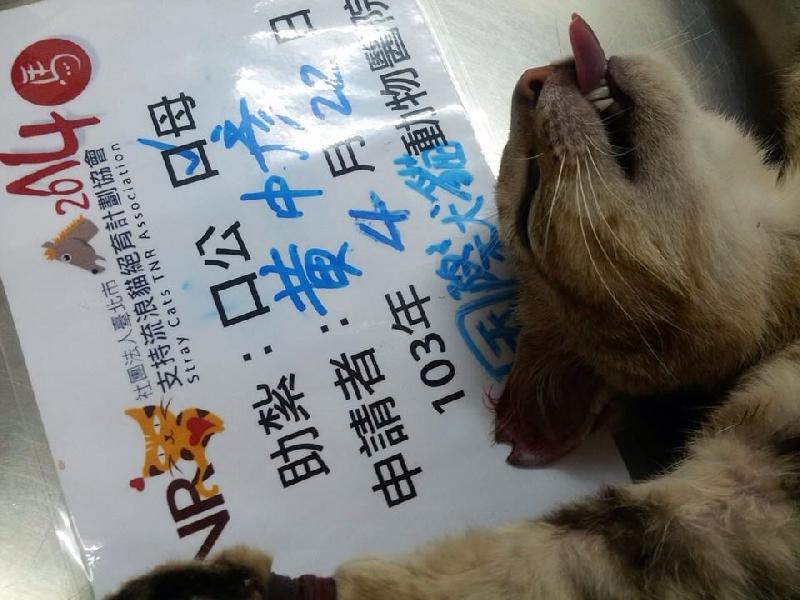 2014
馬
社團法人臺北市
支持流浪貓絕育計劃協會
Stray Cats TNR Association
TNR
助紮：口公 口母
申請者：黃中彥
103年4月22日
動物醫院
犬貓